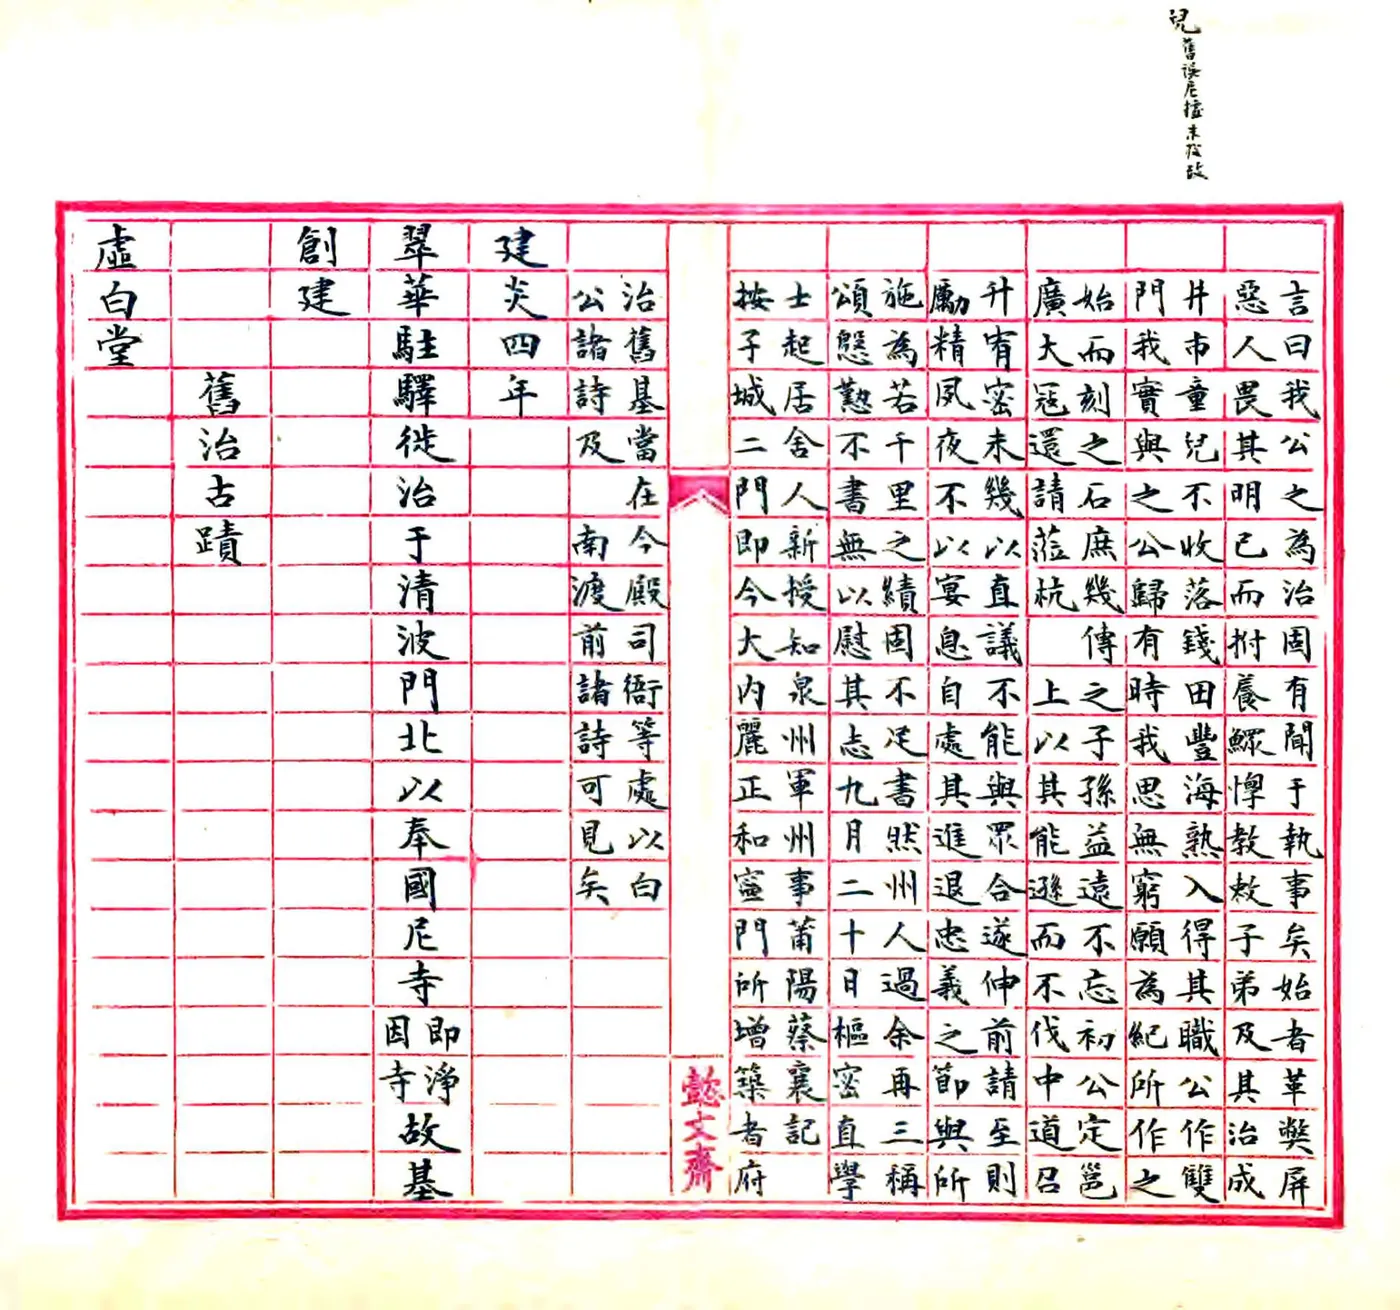 兒舊誤尼據改
言曰我公之為治固有聞于執事矣始者革獘屏
惡人畏其明已而拊養鰥惸教敕子弟及其治成
井市童兒不收落錢田豐海熟入得其職公作雙
門我實與之公歸有時我思無窮願為紀所作之
始而刻之石庶幾傳之子孫益遠不忘初公定邕
廣大冦還請蒞杭 上以其能遜而不伐中道召
升宥密未幾以直議不能與眾合遂伸前請至則
勵精夙夜不以宴息自處其進退忠義之節與所
施為若千里之績固不足書然州人過余再三稱
頌慇懃不書無以慰其志九月二十日樞密直學
士起居舍人新授知泉州軍州事莆陽蔡襄記
按子城二門即今大內麗正和寍門所增築者府
懿文齋
治舊基當在今殿司衙等處以白
公諸詩及 南渡前諸詩可見矣
建炎四年
翠華駐驛徙治于清波門北以奉國尼寺即淨因寺故基
創建
舊治古蹟
虛白堂